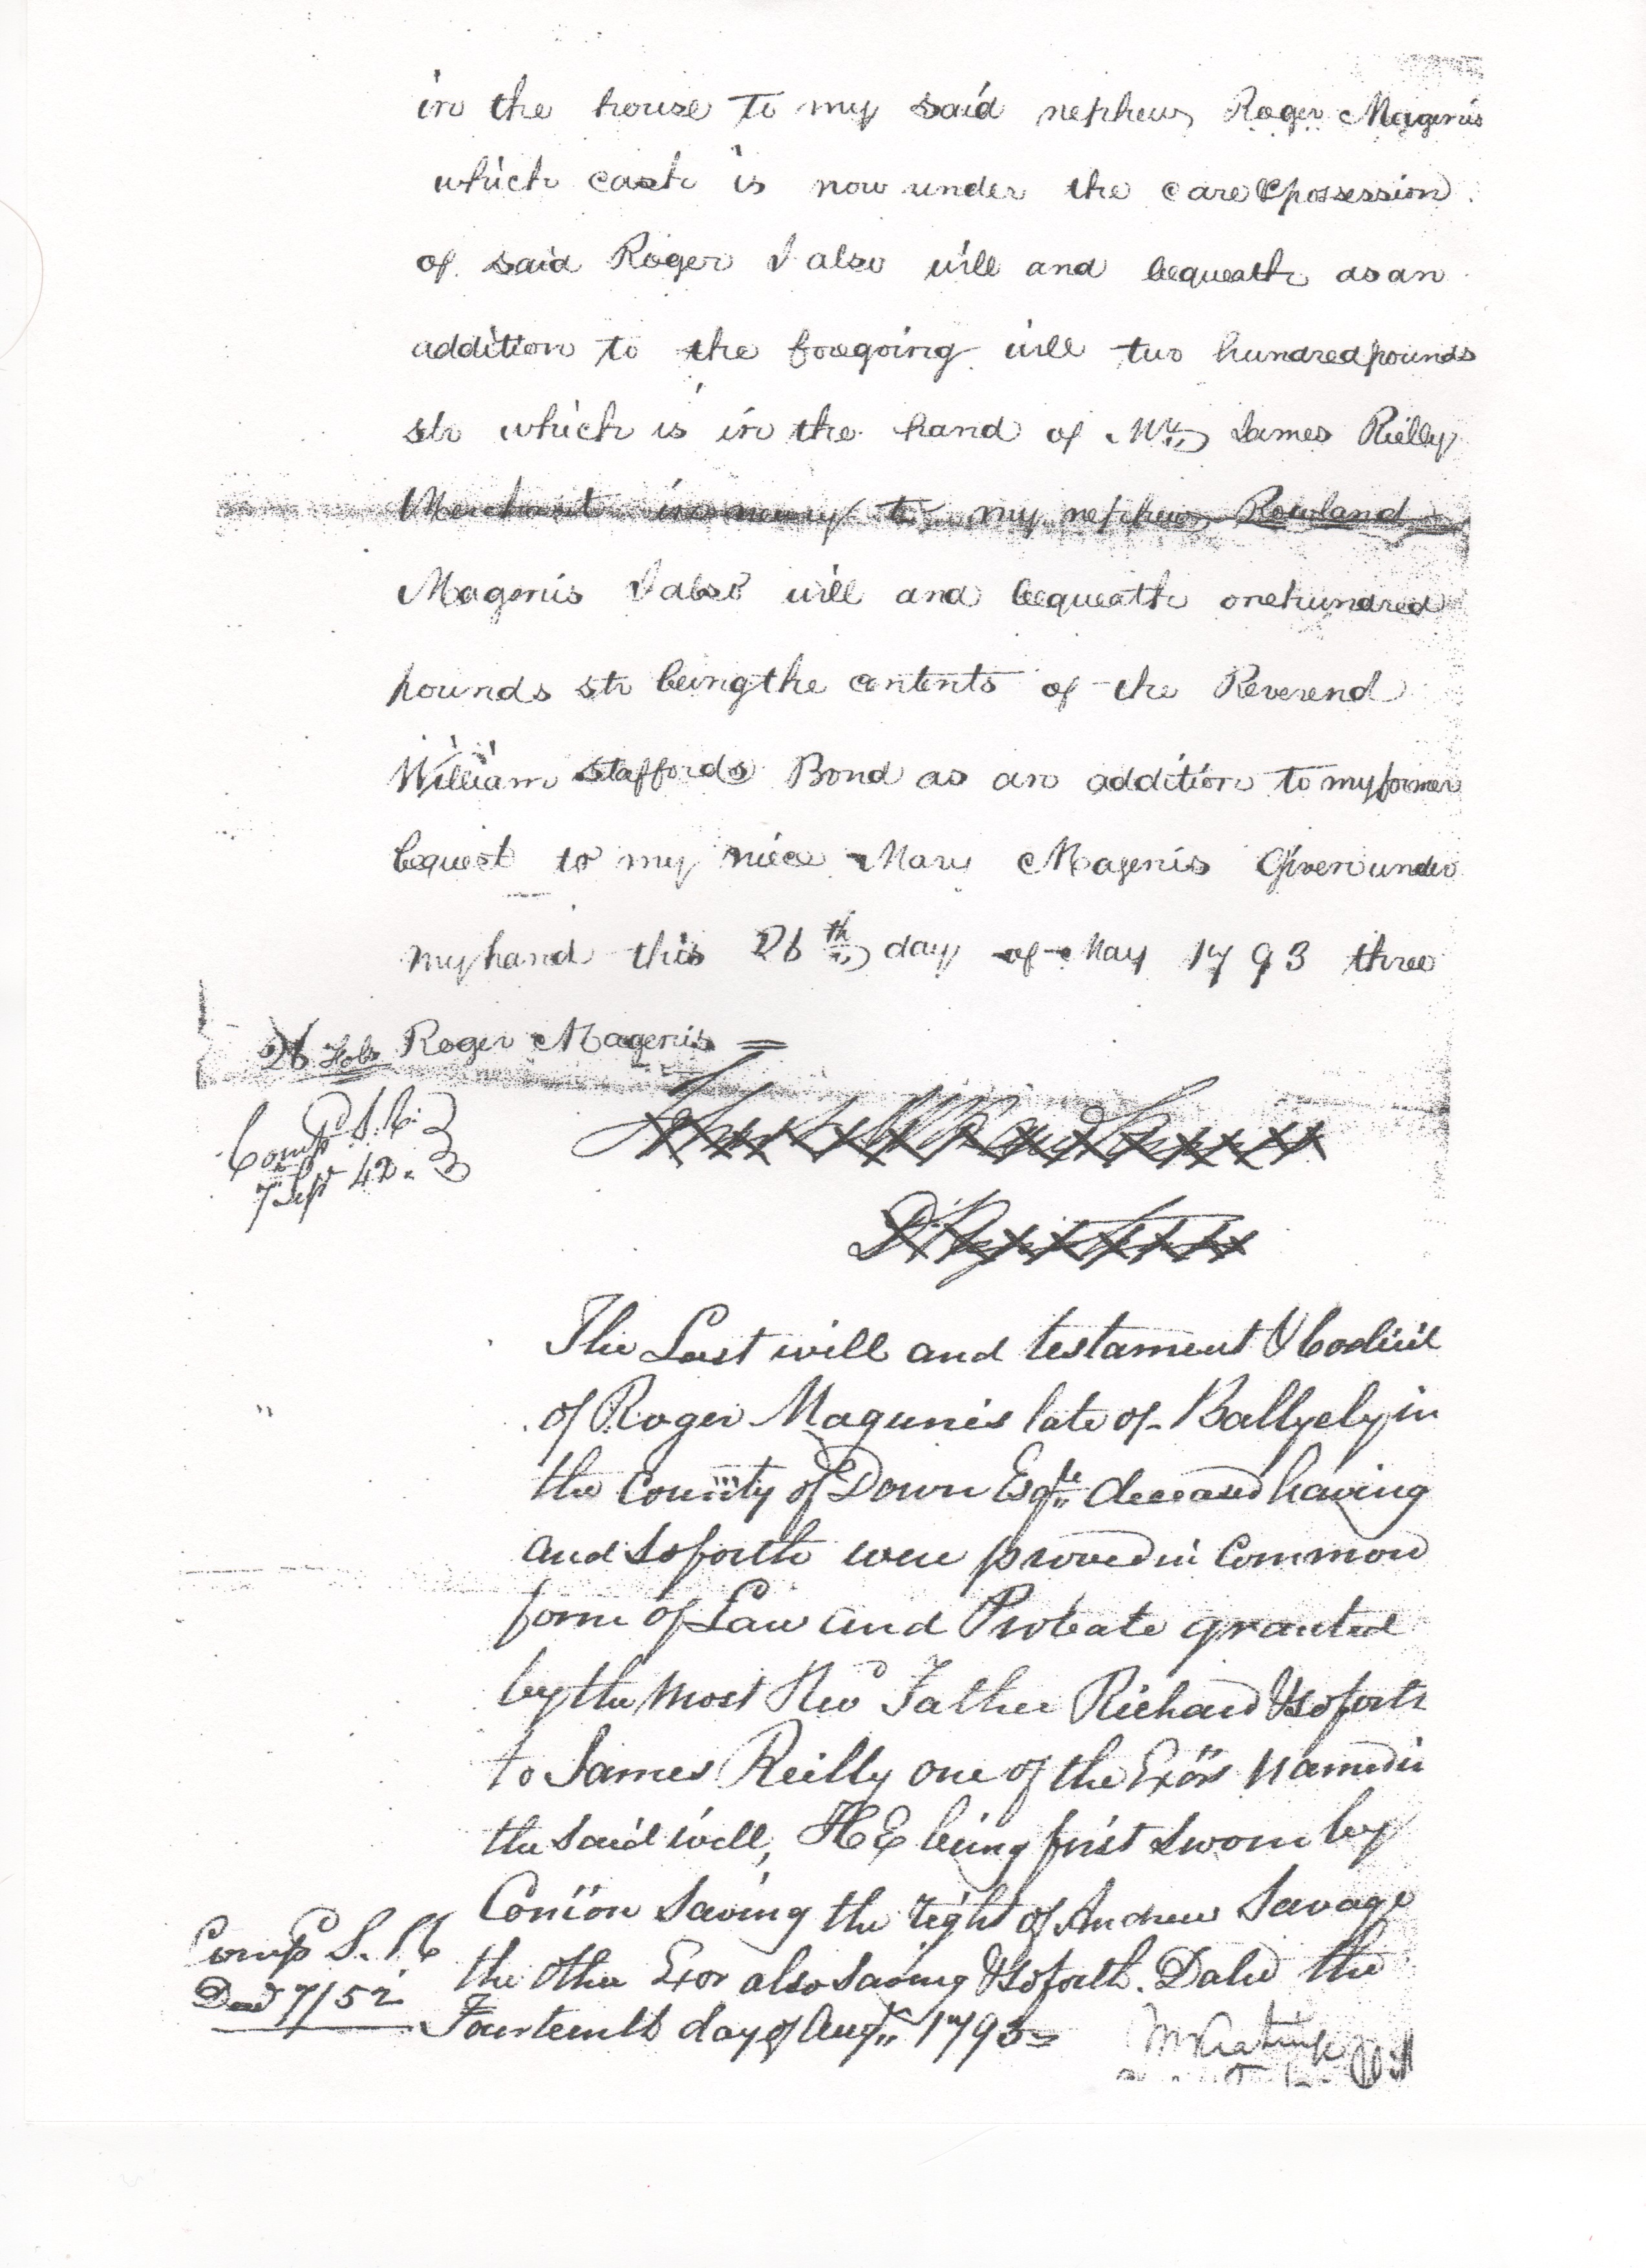 in the house to my said nephew Roger Magenis
which cash is now under the care & possession
of said Roger I also will and bequeath as an
addition to the foregoing will two hundred pounds
str which is in the hand of Mr James Rielly
Merchant in newry to my nephew Rowland
Magenis I also will and bequeath one hundred
pounds str being the contents of the Reverend
William Staffords Bond as an addition to my former
bequest to my niece Mary Magenis Given under
my hand this 26th day of May 1793 three
26 Fols Roger Magenis
Compd S.R.
7 Sepr 42.
The Last will and testament & Codicil
of Roger Magenis late of Ballyely in
the County of Down Esqre deceased having
and so forth were proved in Common
form of Law and Probate granted
by the Most Revd Father Richard & so forth
to James Reilly one of the Exors named in
the said will, HE being first sworn by
Comïon saving the right of Andrew Savage
the other Exor also saving & so forth. Dated the
Compd S. R
7/52
Fourteenth day of Augt 1793